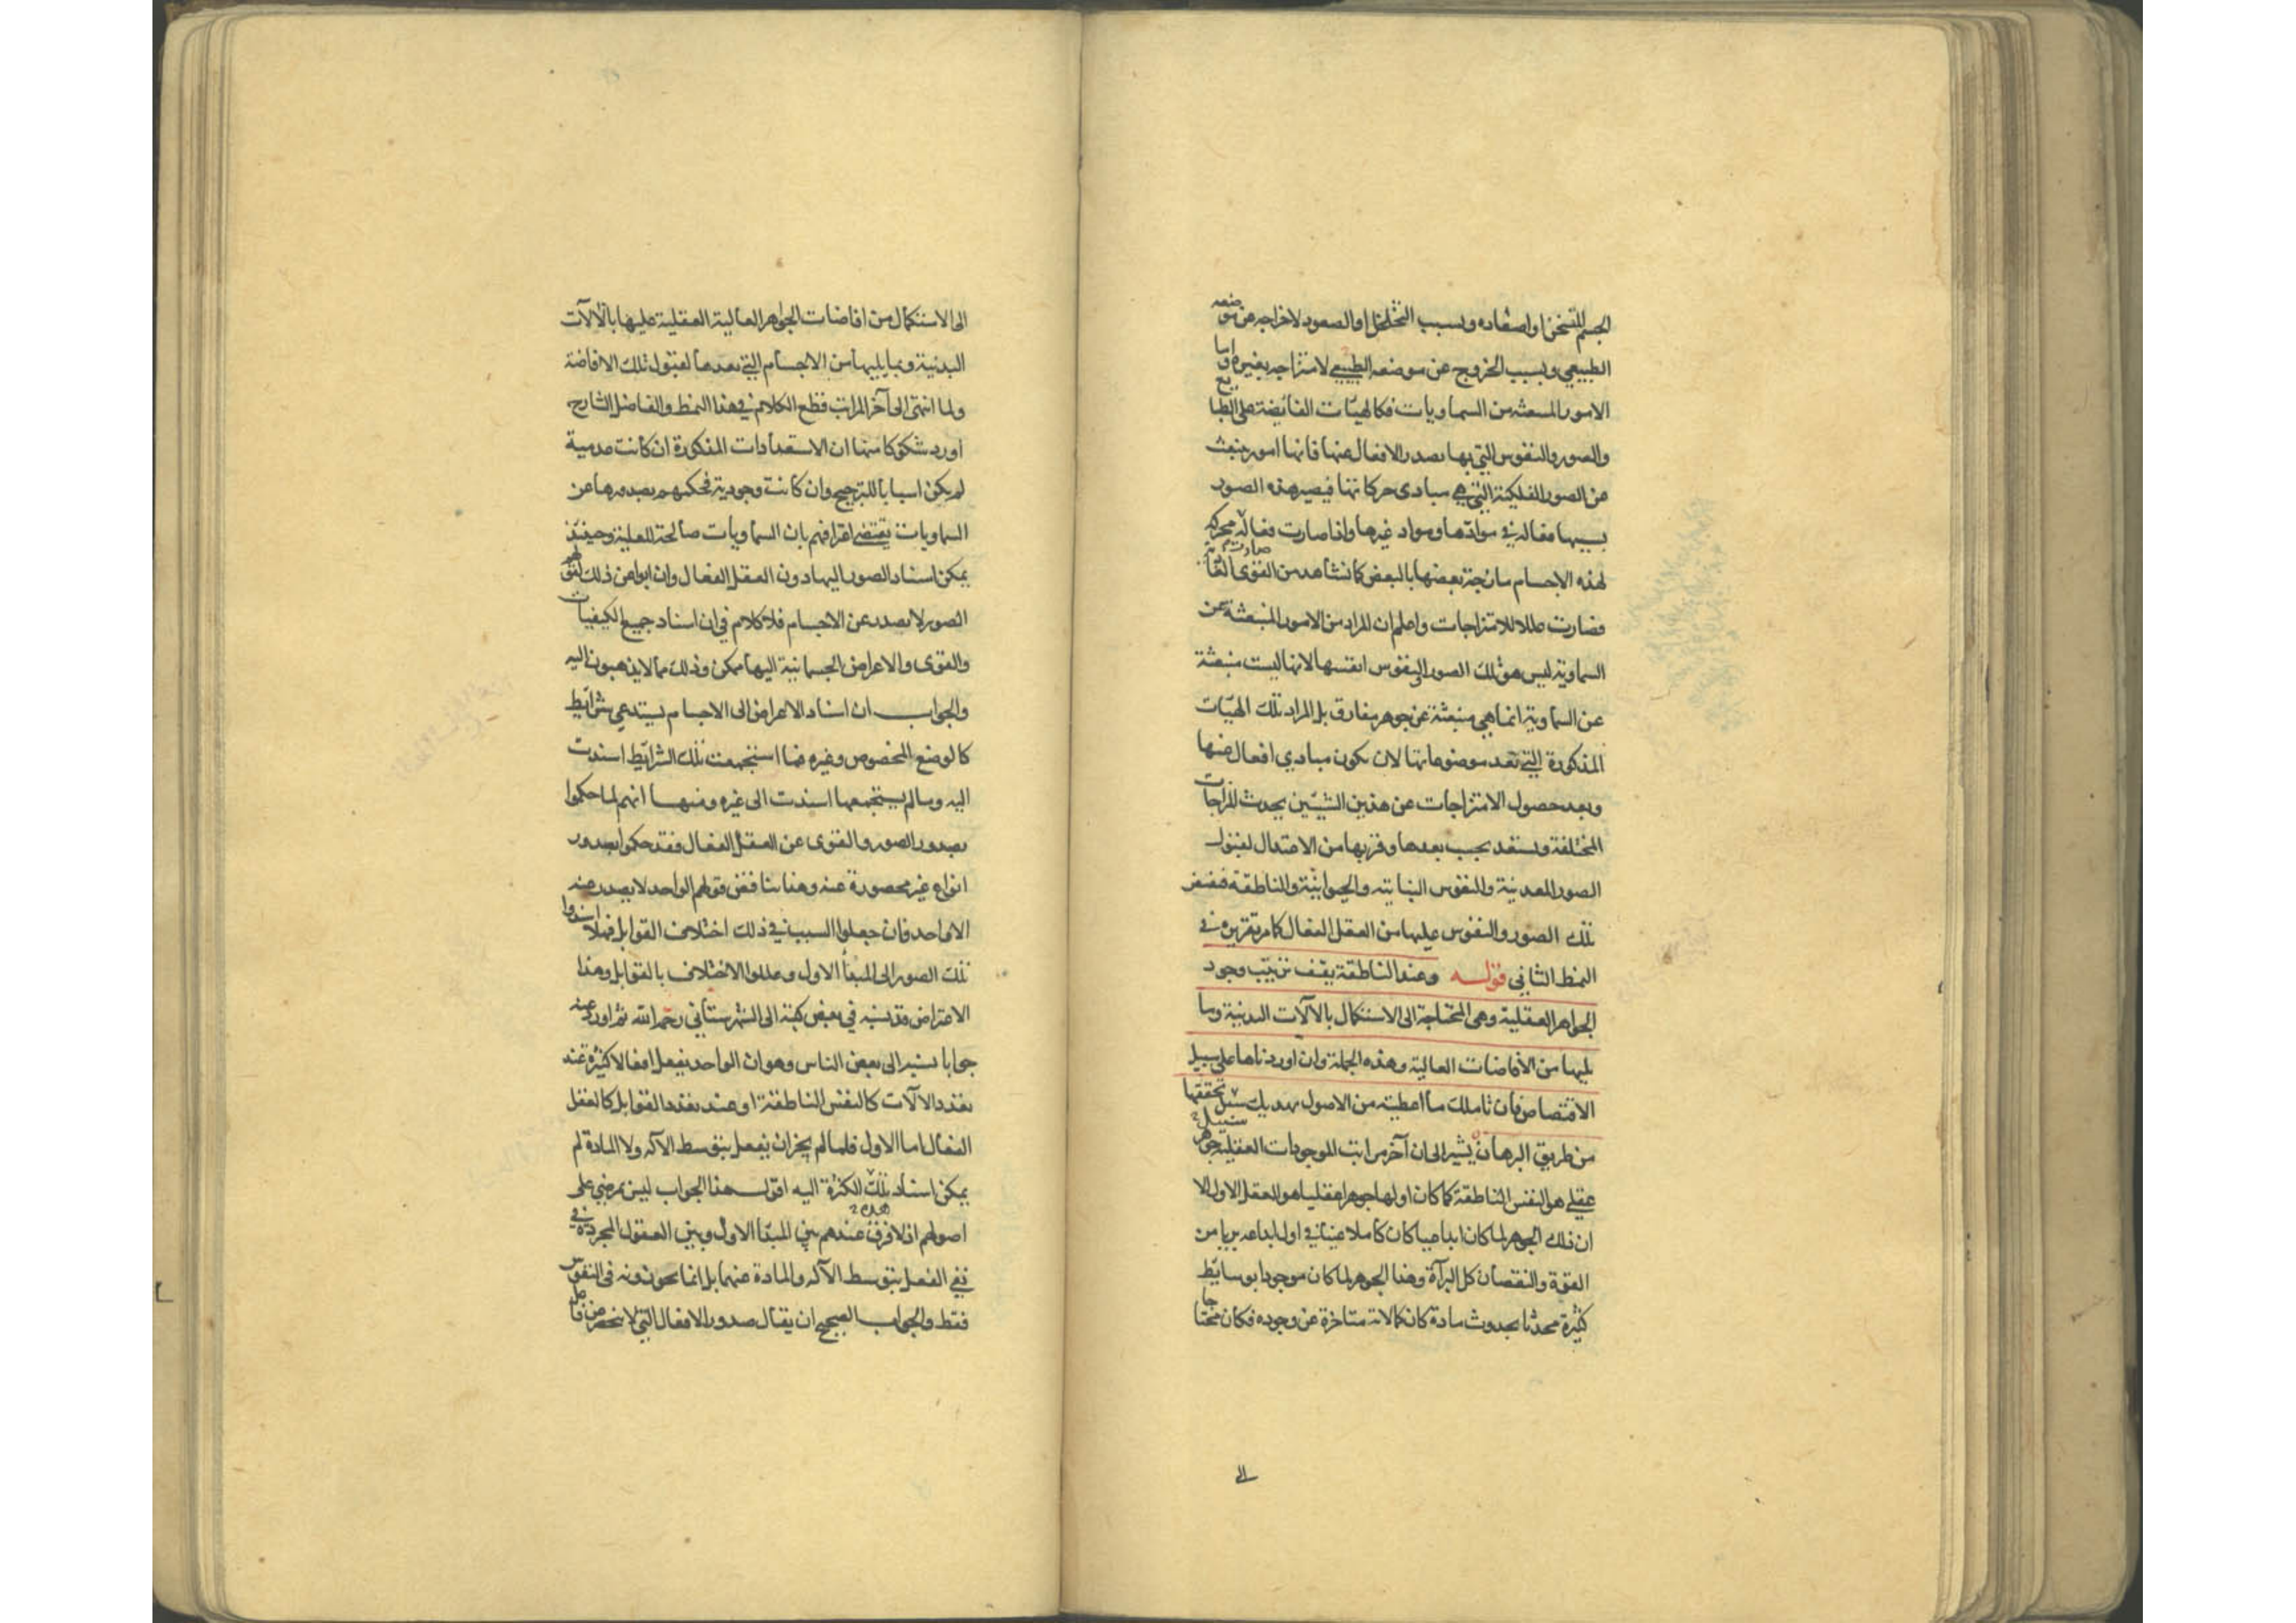 الجسم للتسخن او اصعاده وبسبب التخلخل او الصعود لاخراجه عن موضعه
الطبيعي وبسبب الخروج عن موضعه الطبيعي لامتزاجه بغيره واما
الامور المنبعثة من السماويات فكالهيئات الفائضة على الطبايع
والصور والنفوس التي بها يصدر الافعال عنها فانها امور منبعث
عن الصور الفلكية التي هي مبادى حركاتها فيصير هذه الصور
بسببها فعالة في موادها ومواد غيرها واذا صارت فعالة محركة
لهذه الاجسام مازجة بعضها بالبعض كما نشاهد من القوى
فصارت عللا للامتزاجات واعلم ان المراد من الامور المنبعثة عن
السماوية ليس هو تلك الصور والنفوس انفسها لانها ليست منبعثة
عن السماوية انما هي منبعثة عن جوهر مفارق بل المراد تلك الهيئات
المذكورة التي تعد موضوعاتها لان تكون مبادي افعال عنها
وبعد حصول الامتزاجات عن هذين الشيئين يحدث المزاجات
المختلفة وتستعد بحسب بعدها وقربها من الاعتدال لقبول
الصور المعدنية والنفوس النباتية والحيوانية والناطقة فتفيض
تلك الصور والنفوس عليها من العقل الفعال كما مر تقريره في
النمط الثاني قوله وعند الناطقة يقف ترتيب وجود
الجواهر العقلية وهي المحتاجة الى الاستكمال بالآلات البدنية وما
يليها من الافاضات العالية وهذه الجملة وان اوردناها على سبيل
الاقتصاص فان تاملك ما اعطيته من الاصول يهديك سبيل تحققها
من طريق البرهان يشير الى ان آخر مراتب الموجودات العقلية جوهر
عقلي هو النفس الناطقة كما كان اولها جوهرا عقليا هو العقل الاول الا
ان ذلك الجوهر لما كان ابداعيا كان كاملا غنيا في اول ابداعه بريا من
القوة والنقصان كل البرآة وهذا الجوهر لما كان موجودا بوسايط
كثيرة محدثا بحدوث مادة كان كمالاته متاخرة عن وجوده فكان محتاجا
الى
الى الاستكمال من افاضات الجواهر العالية العقلية عليها بالآلات
البدنية وبما يليها من الاجسام التي تعدها لقبول تلك الافاضة
ولما انتهى الى آخر المراتب قطع الكلام في هذا النمط والفاضل الشارح
اورد شكوكا منها ان الاستعدادات المذكورة ان كانت عدمية
لم يكن اسبابا للترجيح وان كانت وجودية فحكمهم بصدورها عن
السماويات يقتضي اعترافهم بان السماويات صالحة للعلية وحينئذ
يمكن اسناد الصور اليها دون العقل الفعال وان ابوا عن ذلك لقولهم
الصور لا يصدر عن الاجسام فلا كلام في ان اسناد جميع الكيفيات
والقوى والاعراض الجسمانية اليها ممكن وذلك مما لا يذهبون اليه
والجواب ان اسناد الاعراض الى الاجسام يستدعي شرائط
كالوضع المخصوص وغيره فما استجمعت تلك الشرائط اسندت
اليه وما لم يستجمعها اسندت الى غيره ومنها انهم لما حكموا
بصدور الصور والقوى عن العقل الفعال فقد حكموا بصدور
انواع غير محصورة عنه وهذا يناقض قولهم الواحد لا يصدر عنه
الا الواحد فان جعلوا السبب في ذلك اختلاف القوابل فهلا اسندوا
تلك الصور الى المبدأ الاول وعللوا الاختلاف بالقوابل وهذا
الاعتراض قد نسبه في بعض كتبه الى الشهرستاني رحمه الله ثم اورد عنه
جوابا نسبه الى بعض الناس وهو ان الواحد يفعل افعالا كثيرة عند
تعدد الآلات كالنفس الناطقة او عند تعدد القوابل كالعقل
الفعال اما الاول فلما لم يجز ان يفعل بتوسط الآلة ولا المادة لم
يمكن اسناد تلك الكثرة اليه اقول هذا الجواب ليس بمرضي على
اصولهم اذ لا فرق عندهم بين المبدأ الاول وبين العقول المجردة في
نفي الفعل بتوسط الآلة والمادة عنهما بل انما يجوزونه في النفوس
فقط والجواب الصحيح ان يقال صدور الافعال التي لا تنحصر من فاعل